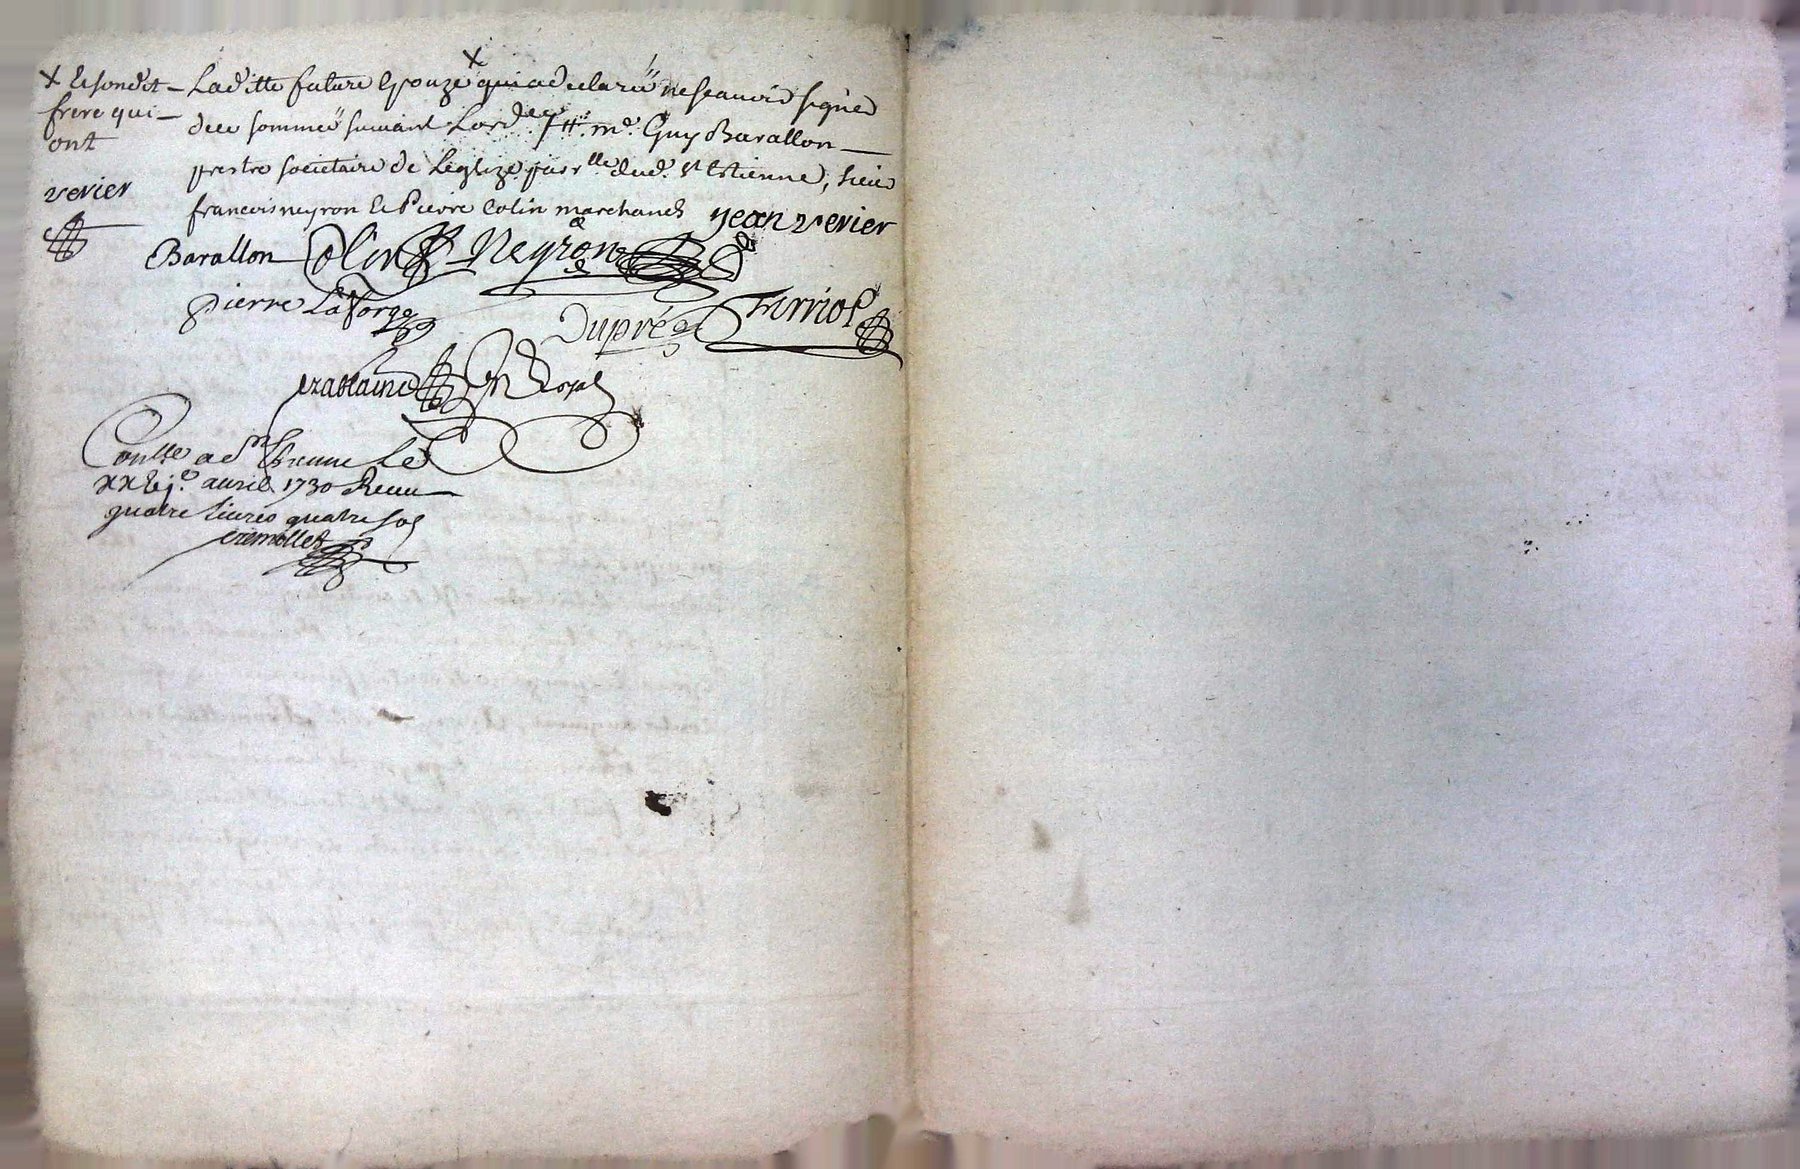 x & sondit
frere qui
ont
verier
Laditte future Epouze x qui a declaré ne scavoir signer
de ce sommée suivant Lord.ce Mre Guy Barallon
prestre societaire de Leglize parr.lle dud. St Estienne, sieur
francois neyron & Pierre Colin marchands jean verier
Barallon Colin Neyron
pierre Laforge Dupré Ferriol
Conlle a St Etienne Le
xxvje avril 1730 Receu
quatre livres quatre sols